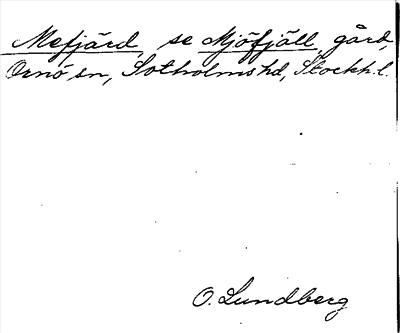 Mefjärd se Mjöfjäll, gård,
Ornö sn, Sotholms hd, Stockh. l.
O. Lundberg